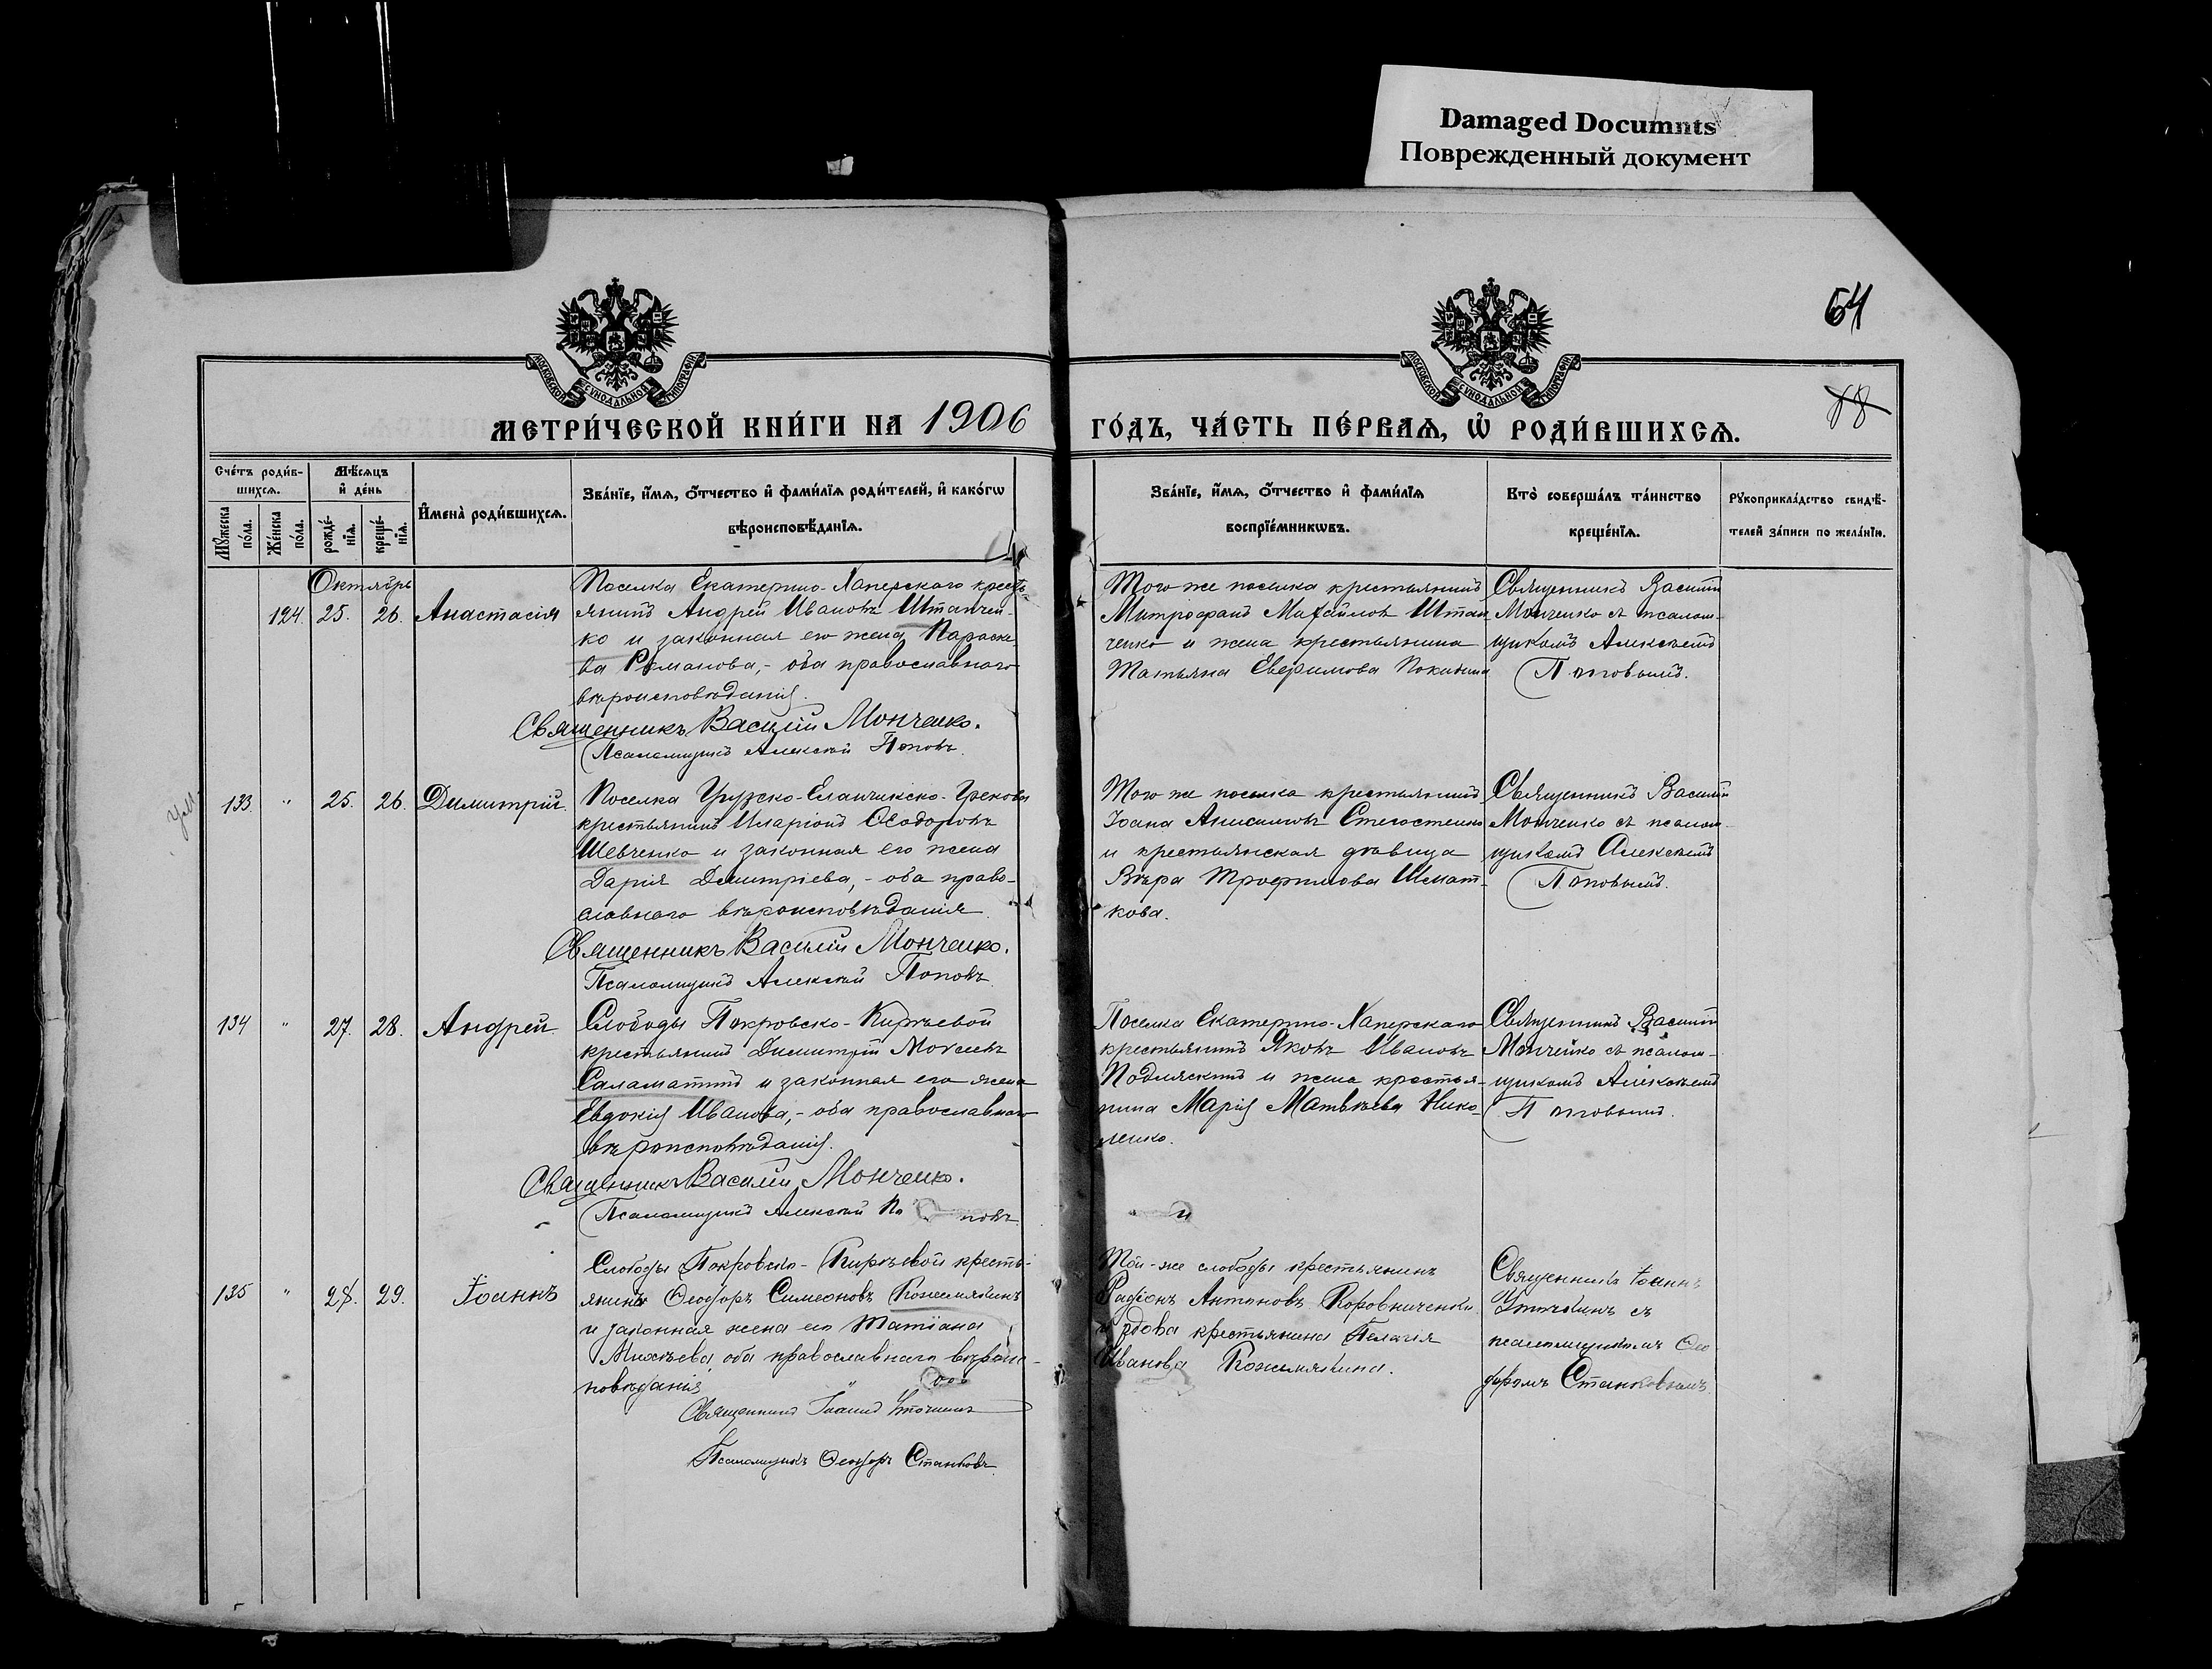 Damaged Documnts
Поврежденный документ
64
88
МЕТРИ́ЧЕСКОЙ КНИ́ГИ НА 1906
ГО́ДЪ, ЧА́СТЬ ПЕ́РВАѦ, Ѡ҆ РОДИ́ВШИХСѦ.
Сче́тъ роди́в-
шихсѧ.
Мꙋ́жеска по́ла.
Же́нска по́ла.
Мѣ́сѧцъ
и҆ де́нь
рожде́-
нїѧ.
креще́-
нїѧ.
И҆мена̀ роди́вшихсѧ.
Зва́нїе, и҆́мѧ, ѻ҆́тчество и҆ фами́лїѧ роди́телей, и҆ како́гѡ
вѣроисповѣ́данїѧ.
Зва́нїе, и҆́мѧ, ѻ҆́тчество и҆ фами́лїѧ
воспрїе́мникѡвъ.
Кто̀ соверша́лъ та́инство
креще́нїѧ.
Рꙋкоприкла́дство свидѣ́-
телей за́писи по жела́нїю.
Октябрь
124. 25. 26. Анастасія
Поселка Екатерино-Хаперскаго кресть
янинъ Андрей Ивановъ Штанчен-
ко и законная его жена Параске-
ва Романова, - оба православнаго
вѣроисповѣданія.
Священникъ Василій Монченко.
Псаломщикъ Алексѣй Поповъ.
Того же поселка крестьянинъ
Митрофанъ Михайловъ Штан
ченко и жена крестьянина
Татьяна
Священникъ Василій
Монченко съ псалом-
щикомъ Алексѣемъ
Поповымъ.
133. " 25. 26. Димитрій.
Поселка Еланчикско-Грекова
крестьянинъ Иларіонъ Ѳеодоровъ
Шевченко и законная его жена
Дарія Димитріева, - оба право-
славнаго вѣроисповѣданія.
Священникъ Василій Мончнеко.
Псаломщикъ Алексѣй Поповъ.
Того же поселка крестьянинъ
Іоана
и крестьянская дѣвица
Вѣра Трофимова Шмат-
кова.
Священникъ Василій
Монченко съ псалом-
щикомъ Алексѣемъ
Поповымъ.
134 " 27. 28. Андрей.
Слободы Покровско-Кирѣевой
крестьянинъ Димитрій Моѵсеевъ
Саламатинъ и законная его жена
Евдокія Иванова, - оба православнаго
вѣроисповѣданія.
Священникъ Василій Мончнеко.
Псаломщикъ Алексѣй По повъ.
Поселка Екатерино-Хаперскаго
крестьянинъ Яковъ Ивановъ
Подляскинъ и жена крестья-
нина Марія Матвѣева Нико-
ленко.
и
Священникъ Василій
Монченко съ псалом-
щикомъ Алексѣемъ
Поповымъ.
135 " 28. 29. Іоаннъ
Слободы Покровско-Кирѣевой кресть-
янинъ Ѳеодоръ Симеоновъ Кожемякинъ
и законная жена его Татіана
Михѣева, оба православнаго вѣроис-
повѣданія
Священникъ Іоаннъ
Псаломщикъ Ѳеодоръ Станковъ.
Той-же слободы крестьянинъ
Радіонъ Антоновъ Коровниченко
и вдова крестьянина Пелагія
Иванова Кожемякина.
Священникъ Іоаннъ
съ
псаломщикомъ Ѳео
доромъ Станковымъ.